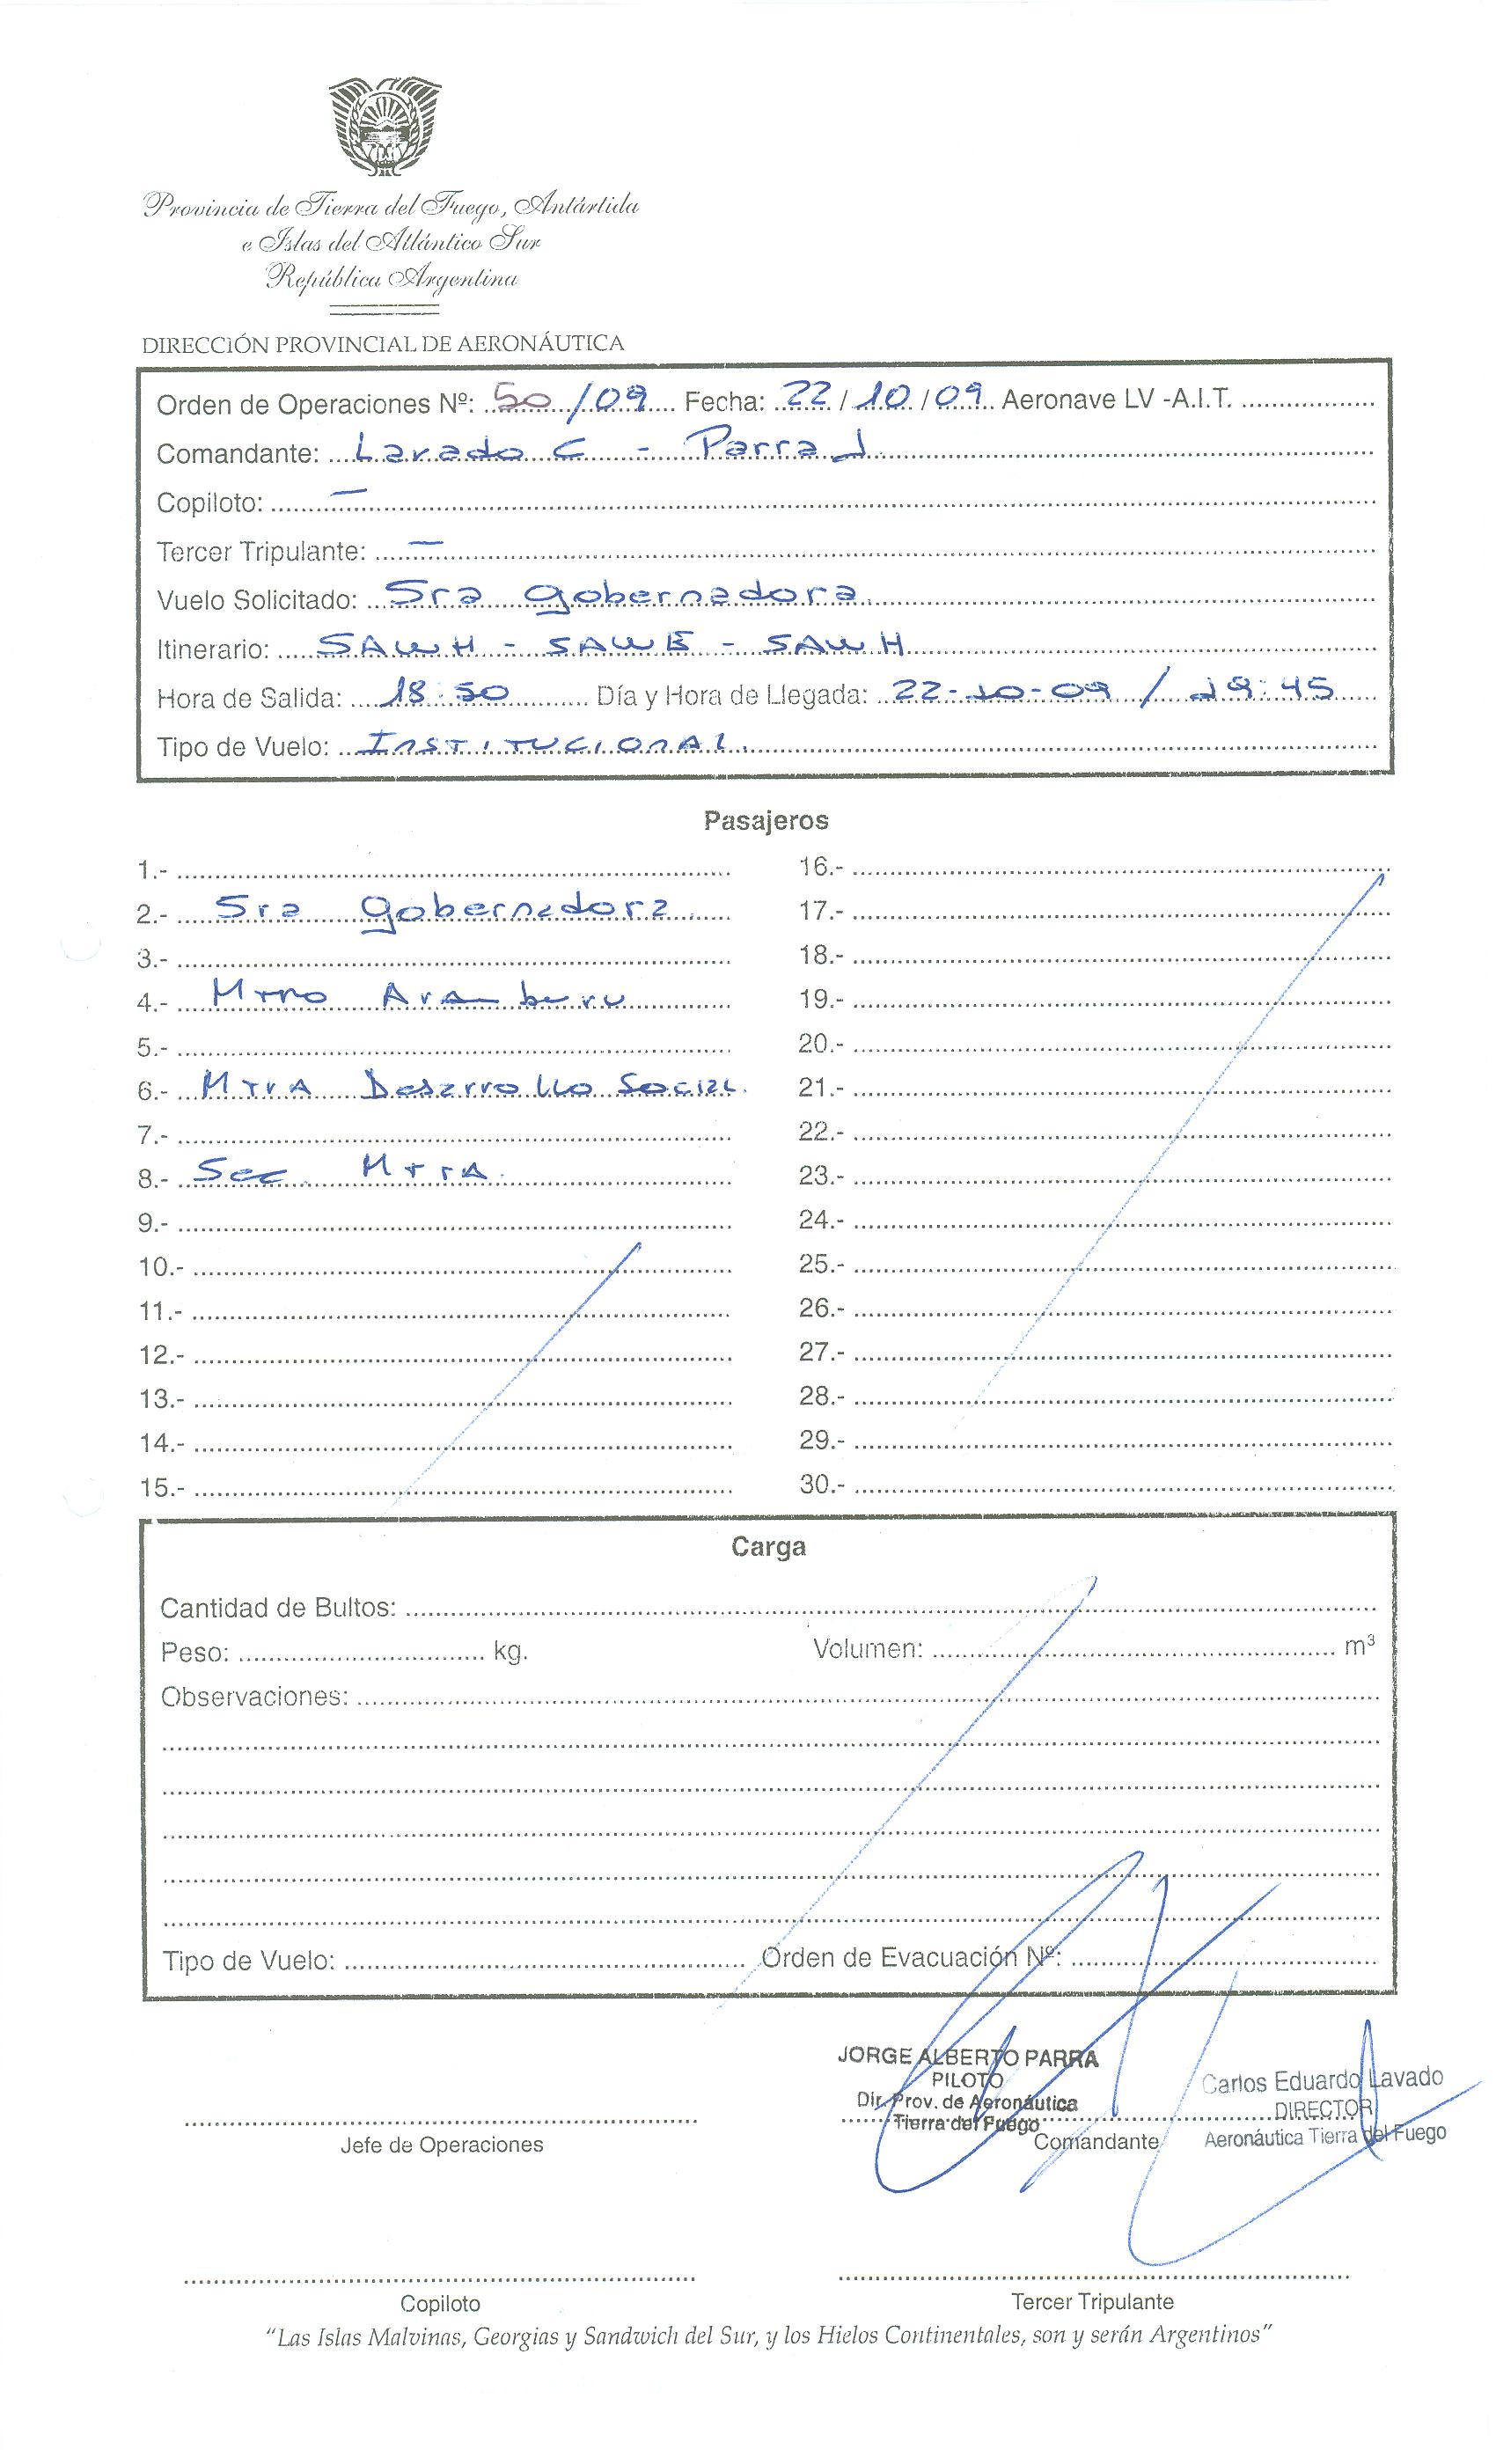 Provincia de Tierra del Fuego, Antártida
e Islas del Atlántico Sur
República Argentina
DIRECCIÓN PROVINCIAL DE AERONÁUTICA
Orden de Operaciones Nº: 50/09 Fecha: 22/10/09 Aeronave LV -A.I.T.
Comandante: Lavado C - Parra J
Copiloto: —
Tercer Tripulante: —
Vuelo Solicitado: Sra Gobernadora
Itinerario: SAWH - SAWE - SAWH
Hora de Salida: 18:50 Día y Hora de Llegada: 22-10-09 / 29:45
Tipo de Vuelo: Institucional
Pasajeros
1.-
2.- Sra Gobernadora
3.-
4.- Mtro Aramburu
5.-
6.- MtrA Desarrollo Social.
7.-
8.- Sec. MtrA.
9.-
10.-
11.-
12.-
13.-
14.-
15.-
16.-
17.-
18.-
19.-
20.-
21.-
22.-
23.-
24.-
25.-
26.-
27.-
28.-
29.-
30.-
Carga
Cantidad de Bultos:
Peso: kg. Volumen: m³
Observaciones:
Tipo de Vuelo: Orden de Evacuación Nº:
JORGE ALBERTO PARRA
PILOTO
Dir. Prov. de Aeronáutica
Tierra del Fuego
Carlos Eduardo Lavado
DIRECTOR
Aeronáutica Tierra del Fuego
Jefe de Operaciones
Comandante
Copiloto
Tercer Tripulante
"Las Islas Malvinas, Georgias y Sandwich del Sur, y los Hielos Continentales, son y serán Argentinos"